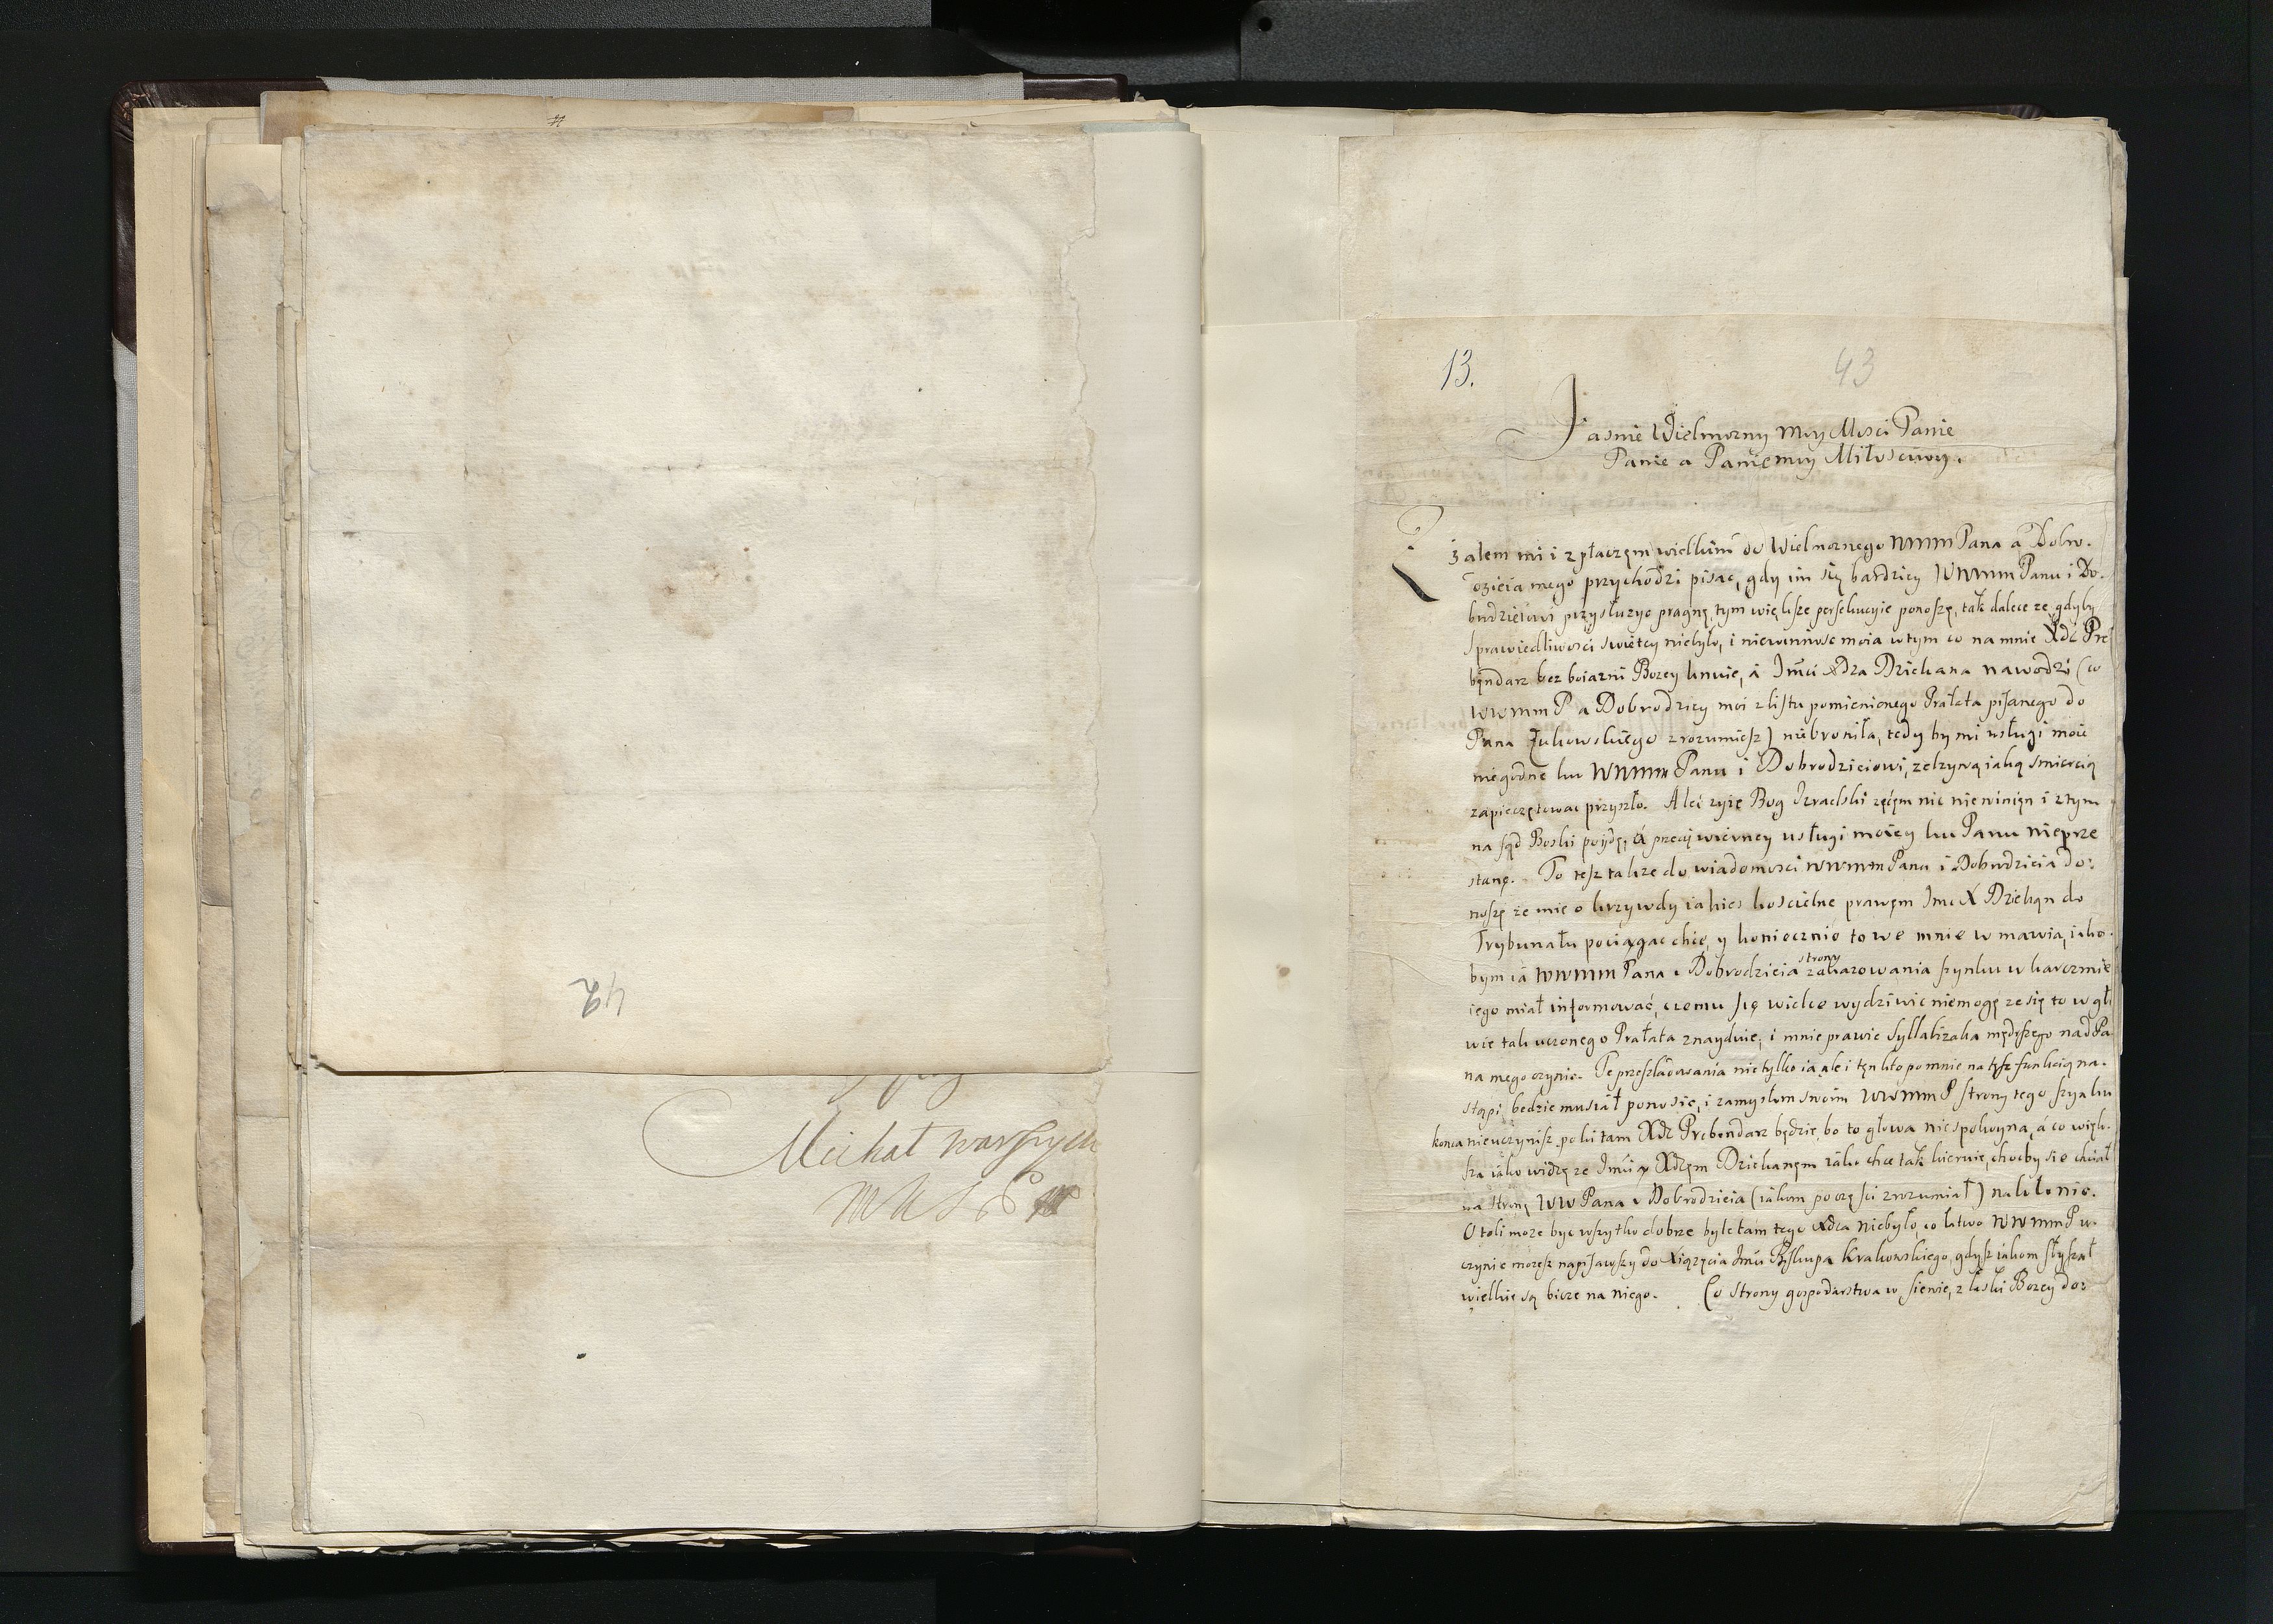 #
42
Michał warszyck
13.
43
Jasnie Wielmozny moy Mosci Panie
Panie a Panie moy Miłosciwy.
Z zalem mi i z płaczęm wielkim do Wielmoznego WMMM Pana a Dobro-
dzieia mego przychodzi pisac, gdy im się bardziey WMMM Panu i Do-
brodzieiowi przysłuzyc pragnę, tym większe persekucyie ponoszę, tak dalece ze gdyby
sprawiedliwosci swiętey niebyło, i niewinnosc moia w tym co na mnie Xdz Pre
bęndarz bez boiazni Bozey knuie, a Imci Xdza Dziekana nawodzi (co
WWMM P a Dobrodziey moi z listu pomienionego Prałata pisanego do
Pana Zukowskiego zrozumiesz) niebroniła, tedy by mi usługi moie
niegodne ku WMMM Panu i Dobrodzieiowi, zelzywą iaką smiercią
zapieczętowac przyszło. Ale zyie Bog Izraelski zęćęm nic niewinięn i z tym
na sąd Boski poydę, á przecię wierney usługi moiey ku Panu nieprze
stanę. To tesz takze do wiadomosci WWMM Panu i Dobrodzieia do:
noszę ze mie o krzywdy iakies koscielne prawęm Imc X Dziekąn do
Trybunału pociągac chce, y koniecznie to we mnie wmawia, iako-
bym ia WWMM Pana i Dobrodzieia strony zakazowania szynku w karczmie
iego miał informowáć, czemu się wielce wydziwic niemogę ze się to w gło
wie tak uczonego Prałata znayduie, i mnie prawie syllabizaka mędrszego nad Pa
na mego czynie. Te przesladowania nietylko ia ale i tęn kto po mnie na tęsz funkcią na-
stąpi, będzie musiáł ponosic, i zamysłom swoim WWMM P strony tego szynku
konca nieuczynisz, poki tam Xdz Prebendarz będzie, bo to głowa niespokoyna, á co więk-
sza iáko widzę ze Imcią Xdzęm Dziekanęm iáko chce tak kieruie, choćby się chciał
na stronę WW Pana i Dobrodzieia (iakom po częsci zrozumiał) nakłonic.
O toli moze byc wszytko dobrze byle tam tego Xdza niebyło, co łatwo WWMM P u-
czynic mozesz napisawszy do Xiązęcia Imci Biskupa Krakowskiego, gdysz iakom słyszał
wielkie są bicze na niego. Co strony gospodarstwa w sienie, z łaski Bozey do: